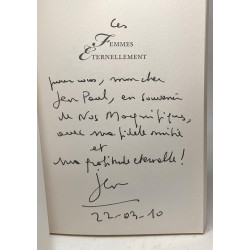 Ces
FEMMES
ETERNELLEMENT
pour vous, mon cher
Jean Paul, en souvenir
de Nos Magnifiques,
avec ma fidèle amitié
et
ma gratitude éternelle !
Jean
22-03-10